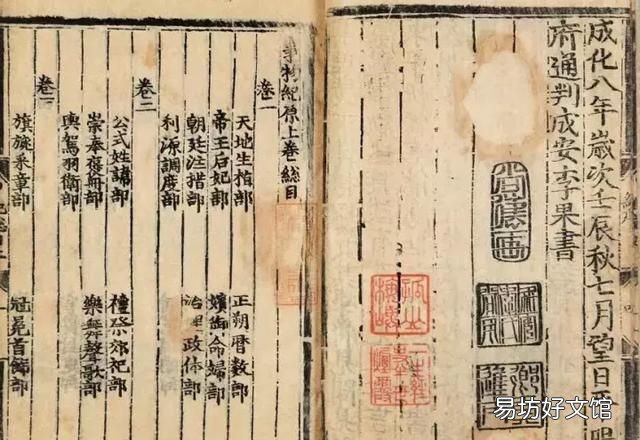 成化八年歲次壬辰秋七月望日
府通判成安李果書
事物紀原上卷總目
卷一
天地生植部 正朔曆數部
帝王后妃部 嬪御命婦部
朝廷注措部 治理政体部
利源調度部
卷二
公式姓諱部 禮祭郊祀部
崇奉褒冊部 樂舞聲歌部
輿駕羽衛部
卷三
旗旐采章部 冠冕首飾部
易坊好文馆